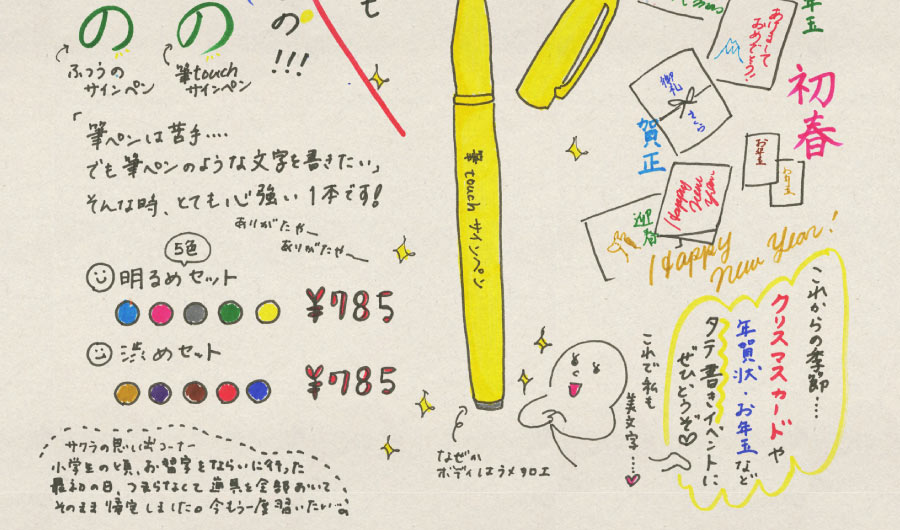 の
の
の
!!!
て
ふつうの
サインペン
筆touch
サインペン
「筆ペンは苦手....
でも筆ペンのような文字を書きたい」
そんな時、とても心強い1本です!
ありがたやー
ありがたやー
5色
明るめセット
¥785
渋めセット
¥785
サクラの思い出コーナー
小学生の頃、お習字をならいに行った
最初の日、つまらなくて道具を全部おいて
そのまま帰宅しました。今もう一度習いたい
筆touchサインペン
なぜか
ボディはうメタロエ
年玉
あけまして
おめでとう!
初春
御礼
賀正
お年玉
お年玉
Happy
New
Year
迎春
Happy
New Year!
これからの季節....
クリスマスカードや
年賀状・お年玉など
タテ書きイベントに
ぜひどうぞ♡
これで私も
美文字....♥